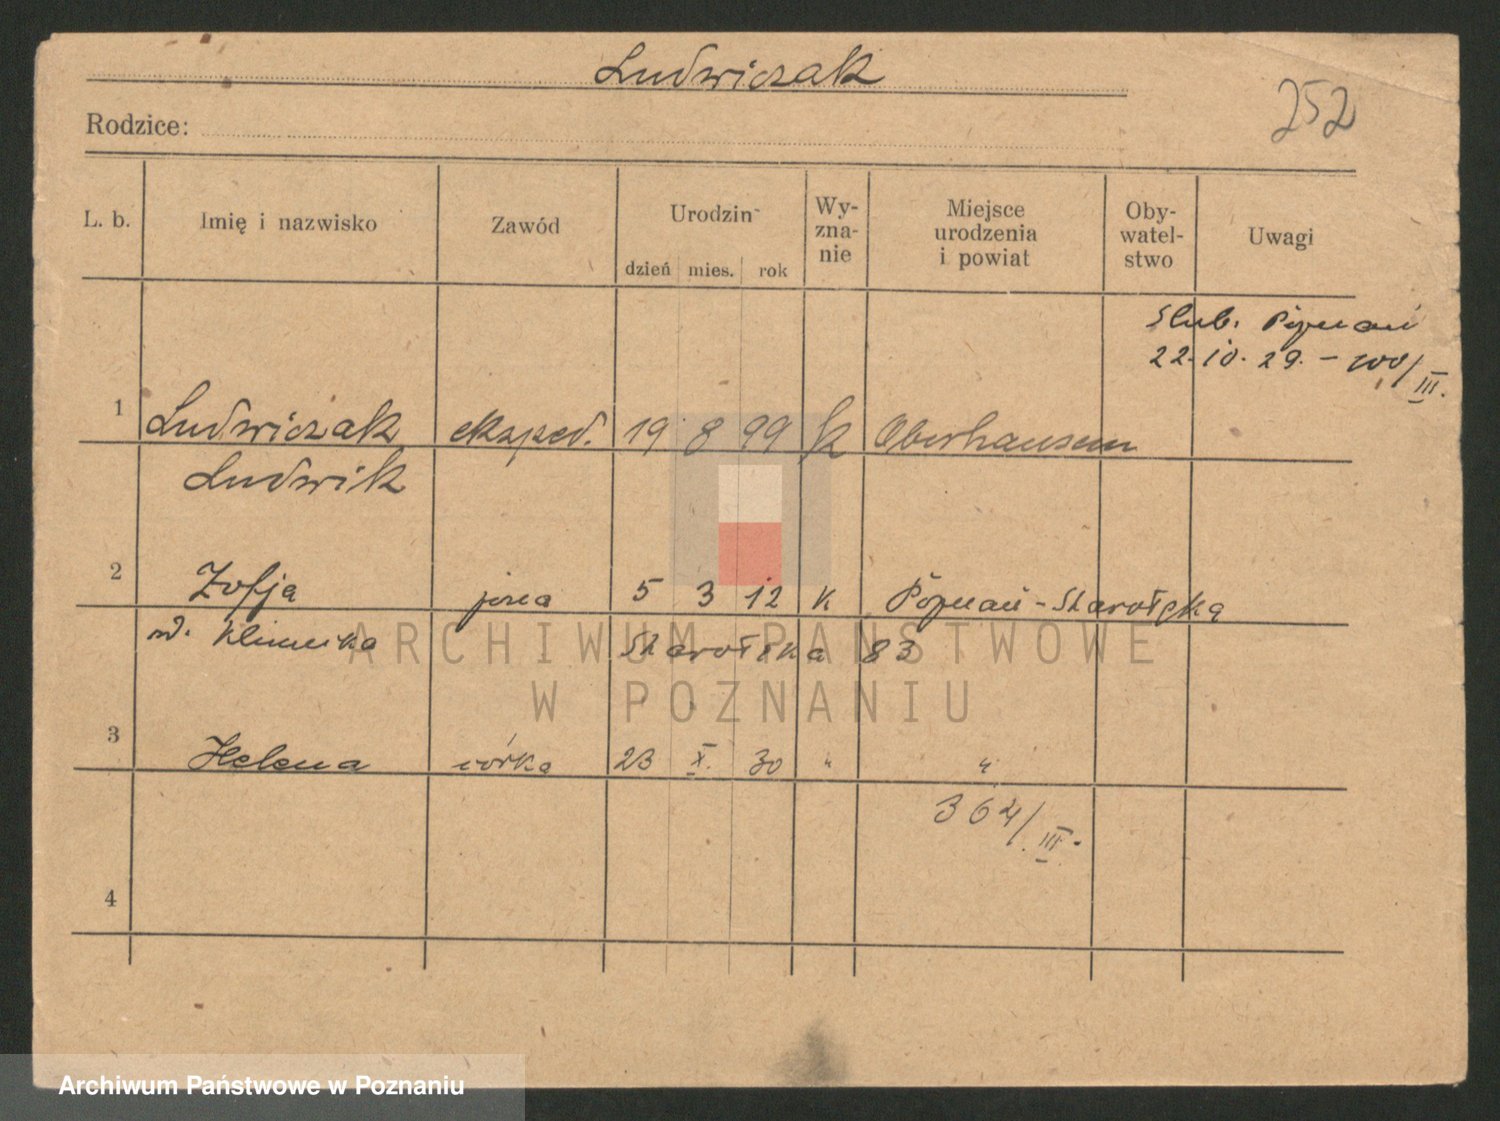 Ludwiczak
252
Rodzice:
L. b. Imię i nazwisko Zawód Urodzin Wy-zna-nie Miejsce urodzenia i powiat Oby-watel-stwo Uwagi
dzień mies. rok
Ślub. Poznań
22.10.29. –
/III.
1 Ludwiczak eksped. 19 8 99 k Oberhausem
Ludwik
2 Zofja żona 5 3 12 K Poznań-Starołęka
Starołęka 83
3 Helena córka 23 X. 30 " "
364/III.
4
ARCHIWUM PAŃSTWOWE
W POZNANIU
Archiwum Państwowe w Poznaniu